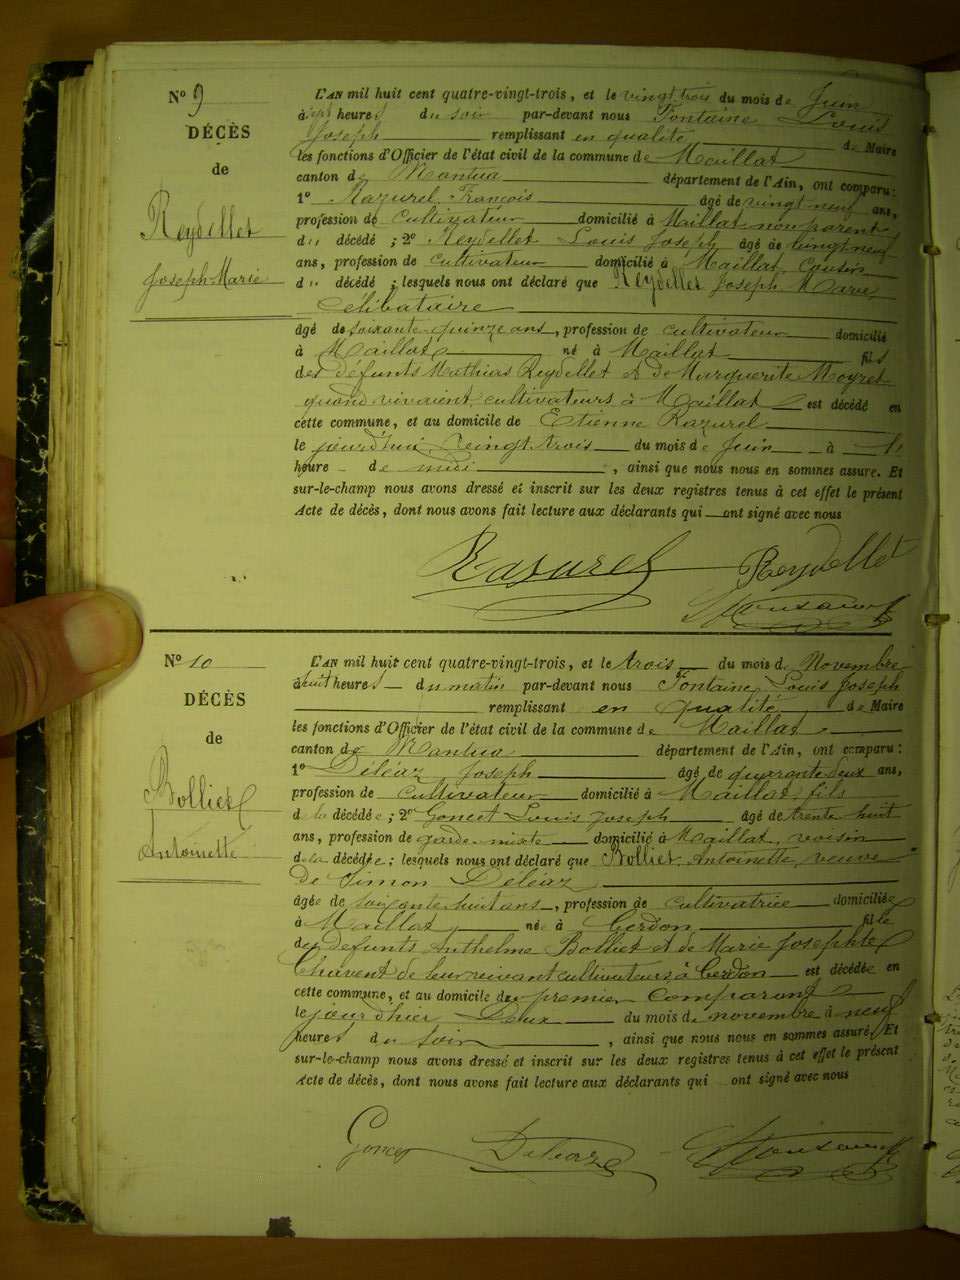 N° 9
DÉCÈS
de
Reydellet
Joseph-Marie
L'AN mil huit cent quatre-vingt-trois, et le vingt trois du mois de Juin
à sept heures du soir par-devant nous Fontaine Louis
Joseph remplissant en qualité de Maire
les fonctions d'Officier de l'état civil de la commune de Maillat
canton de Nantua département de l'Ain, ont comparu :
1° Razurel François âgé de vingt neuf ans,
profession de cultivateur domicilié à Maillat non parent
du décédé ; 2° Reydellet Louis Joseph âgé de vingt neuf
ans, profession de cultivateur domicilié à Maillat, Cousin
du décédé ; lesquels nous ont déclaré que Reydellet Joseph Marie,
Célibataire
âgé de soixante quinze ans, profession de cultivateur domicilié
à Maillat né à Maillat fils
des défunts Mathias Reydellet et de Marguerite Moyret
quand vivaient cultivateurs à Maillat est décédé en
cette commune, et au domicile de Etienne Razurel
le jourd'hui vingt trois du mois de Juin à
heure de midi , ainsi que nous nous en sommes assuré. Et
sur-le-champ nous avons dressé et inscrit sur les deux registres tenus à cet effet le présent
Acte de décès, dont nous avons fait lecture aux déclarants qui ont signé avec nous
Razurel Reydellet
N° 10
DÉCÈS
de
Bolliet
Antoinette
L'AN mil huit cent quatre-vingt-trois, et le trois du mois de Novembre
à huit heures du matin par-devant nous Fontaine Louis Joseph
remplissant en qualité de Maire
les fonctions d'Officier de l'état civil de la commune de Maillat
canton de Nantua département de l'Ain, ont comparu :
1° Déléaz Joseph âgé de quarante deux ans,
profession de cultivateur domicilié à Maillat, fils
de la décédée ; 2° Goncet Louis Joseph âgé de trente huit
ans, profession de garde mixte domicilié à Maillat, voisin
de la décédée ; lesquels nous ont déclaré que Bolliet Antoinette, veuve
de Simon Deléaz
âgée de soixante huit ans, profession de cultivatrice domiciliée
à Maillat née à Cerdon fille
des défunts Anthelme Bolliet et de Marie Josephte
Chavent de leur vivant cultivateurs à Cerdon est décédée en
cette commune, et au domicile du premier Comparant
le jourd'hier Deux du mois de novembre à neuf
heures du soir , ainsi que nous nous en sommes assuré. Et
sur-le-champ nous avons dressé et inscrit sur les deux registres tenus à cet effet le présent
Acte de décès, dont nous avons fait lecture aux déclarants qui ont signé avec nous
Goncet Deléaz